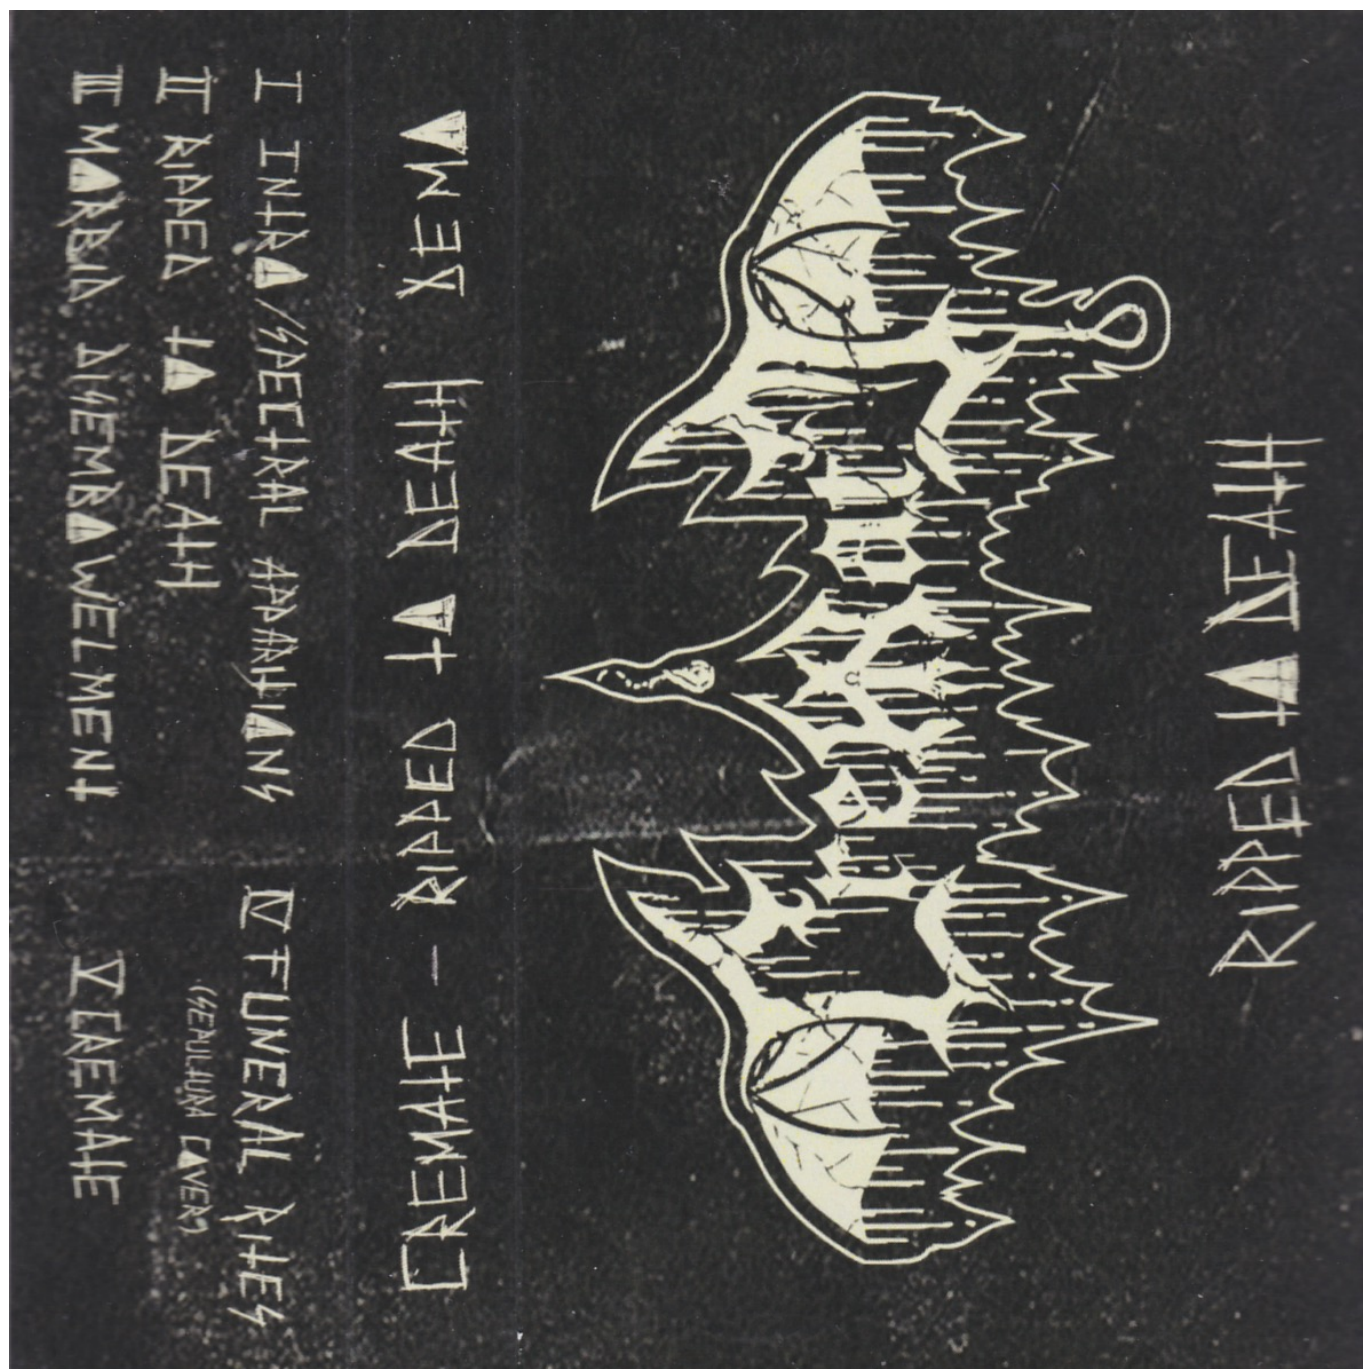 CREMATE
RIPPED TO DEATH
CREMATE - RIPPED TO DEATH DEMO
I INTRO/SPECTRAL APPARITIONS
II RIPPED TO DEATH
III MORBID DISEMBOWELMENT
IV FUNERAL RITES
(SEPULTURA COVER)
V CREMATE